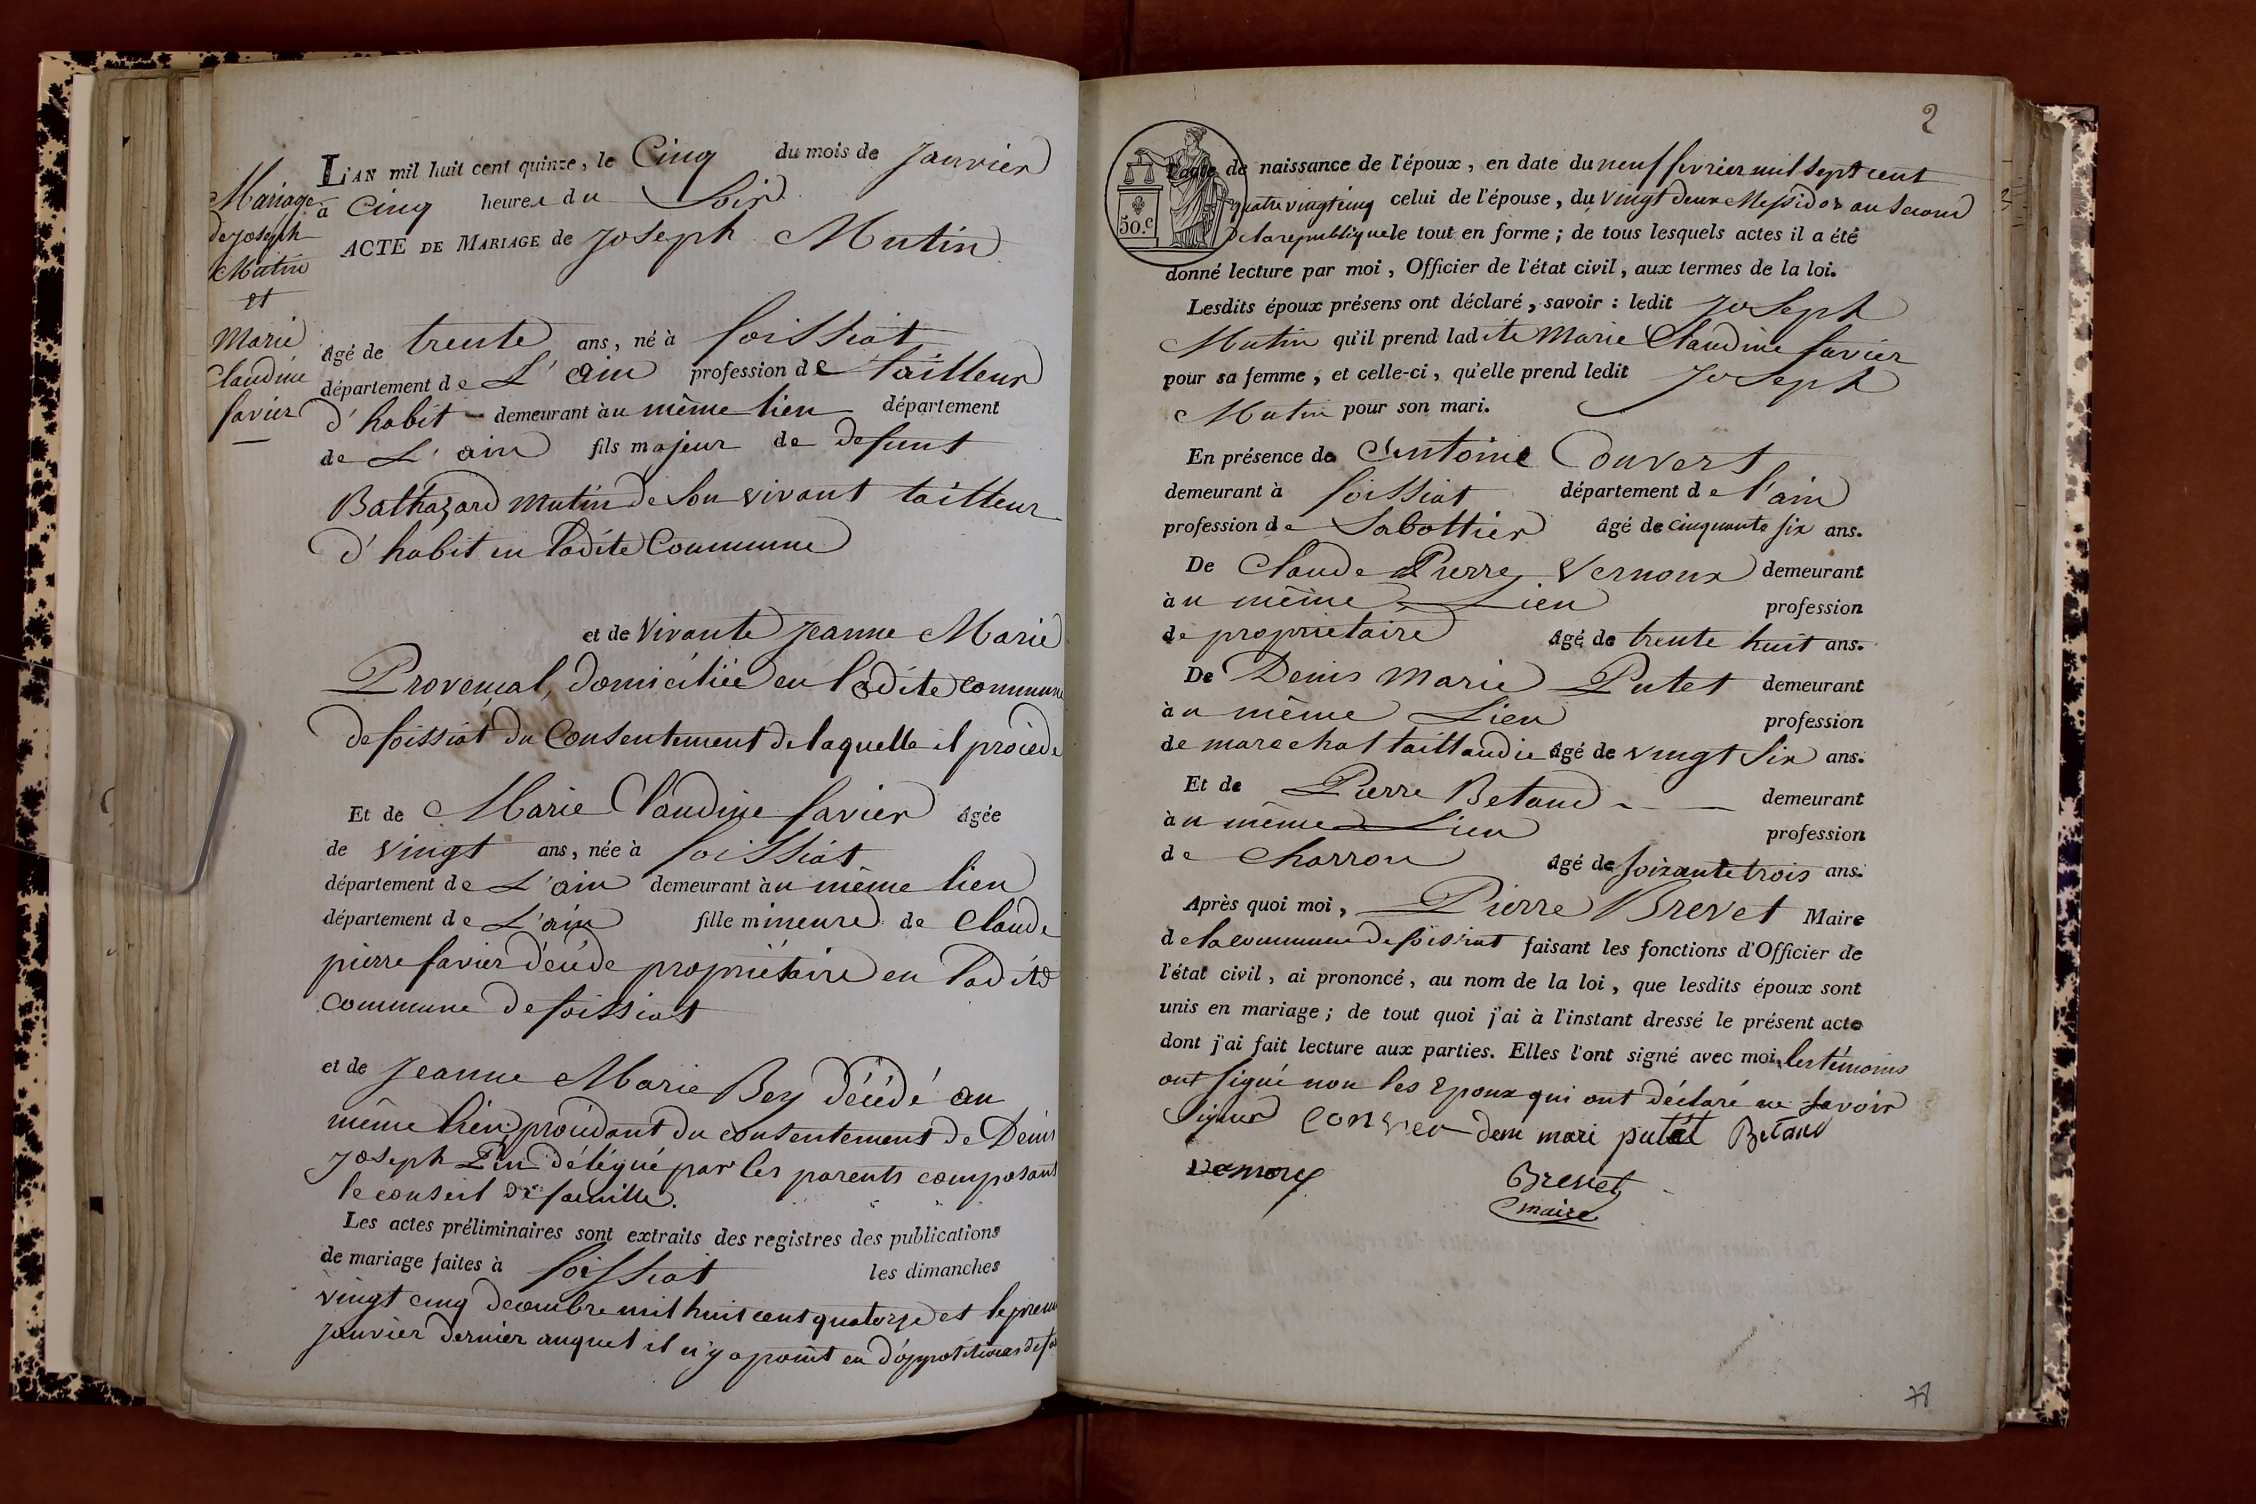 Mariage
de joseph
Mutin
et
marie
Claudine
favier
L'AN mil huit cent quinze, le Cinq du mois de Janvier
à Cinq heures du Soir
ACTE DE MARIAGE de joseph Mutin
âgé de trente ans, né à foissiat
département de L'ain profession de tailleur
d'habit - demeurant au même lieu département
de L'ain fils majeur de defunt
Balthazard mutin de Son vivant tailleur
d'habit en ladite Commune
et de Vivante jeanne Marie
Provencal, domiciliée en ladite commune
de foissiat du Consentement de laquelle il procède
Et de Marie Claudine favier âgée
de vingt ans, née à foissiat
département de L'ain demeurant au même lieu
département de L'ain fille mineure de Claude
pierre favier décéde propriétaire en ladite
commune de foissiat
et de jeanne Marie Bey décédé au
même lieu procédant du consentement de Denis
joseph Pin délégué par les parents composant
le conseil de famille.
Les actes préliminaires sont extraits des registres des publications
de mariage faites à foissiat les dimanches
vingt cinq decembre mil huit cent quatorze et le premier
janvier dernier auquel il n'y a point eu d'oppositions de
2
50.c
l'acte de naissance de l'époux, en date du neuf fevrier mil sept cent
quatre vingt cinq celui de l'épouse, du vingt deux Messidor an Second
de la republique le tout en forme; de tous lesquels actes il a été
donné lecture par moi, Officier de l'état civil, aux termes de la loi.
Lesdits époux présens ont déclaré, savoir : ledit joseph
Mutin qu'il prend ladite Marie Claudine favier
pour sa femme, et celle-ci, qu'elle prend ledit joseph
Mutin pour son mari.
En présence de Antoine Couvert
demeurant à foissiat département de l'ain
profession de Sabottier âgé de cinquante six ans.
De Claude Pierre Vernoux demeurant
au même Lieu profession
de proprietaire âgé de trente huit ans.
De Denis marie Putet demeurant
au même Lieu profession
de marechal taillandie âgé de vingt Six ans.
Et de Pierre Betaud demeurant
au même Lieu profession
de Charron âgé de soixante trois ans.
Après quoi moi, Pierre Brevet Maire
de la commune de foissiat faisant les fonctions d'Officier de
l'état civil, ai prononcé, au nom de la loi, que lesdits époux sont
unis en mariage; de tout quoi j'ai à l'instant dressé le présent acte
dont j'ai fait lecture aux parties. Elles l'ont signé avec moi les témoins
ont signé non les Epoux qui ont déclaré ne savoir
signer
mari putet Betaud
Brevet
maire